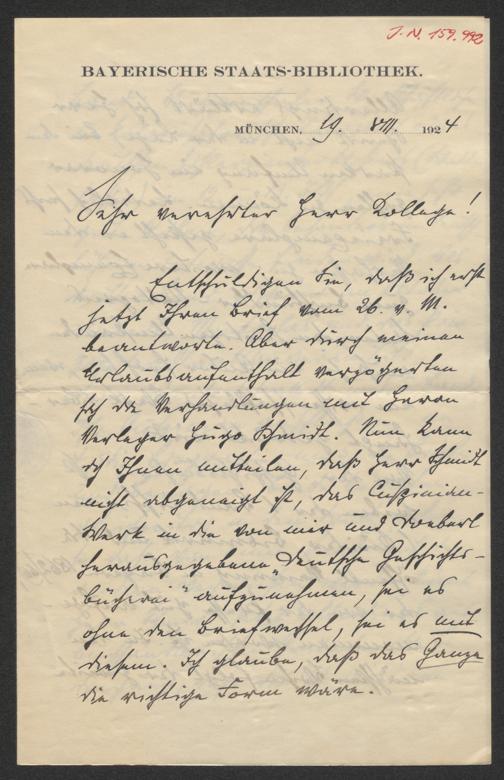 J. N. 159.992
BAYERISCHE STAATS-BIBLIOTHEK.
MÜNCHEN, 19. VIII. 1924
Sehr verehrter Herr Kollege!
Entschuldigen Sie, daß ich erst
jetzt Ihren Brief vom 26. v. M.
beantworte. Aber durch meinen
Urlaubsaufenthalt verzögerten
sich die Verhandlungen mit Herrn
Verleger Hugo Schmidt. Nun kann
ich Ihnen mitteilen, daß Herr Schmidt
nicht abgeneigt ist, das Cuspinian-
Werk in die von mir und Doeberl
herausgegebene „Deutsche Geschichts-
bücherei" aufzunehmen, sei es
ohne den Briefwechsel, sei es mit
diesem. Ich glaube, daß das Ganze
die richtige Form wäre.